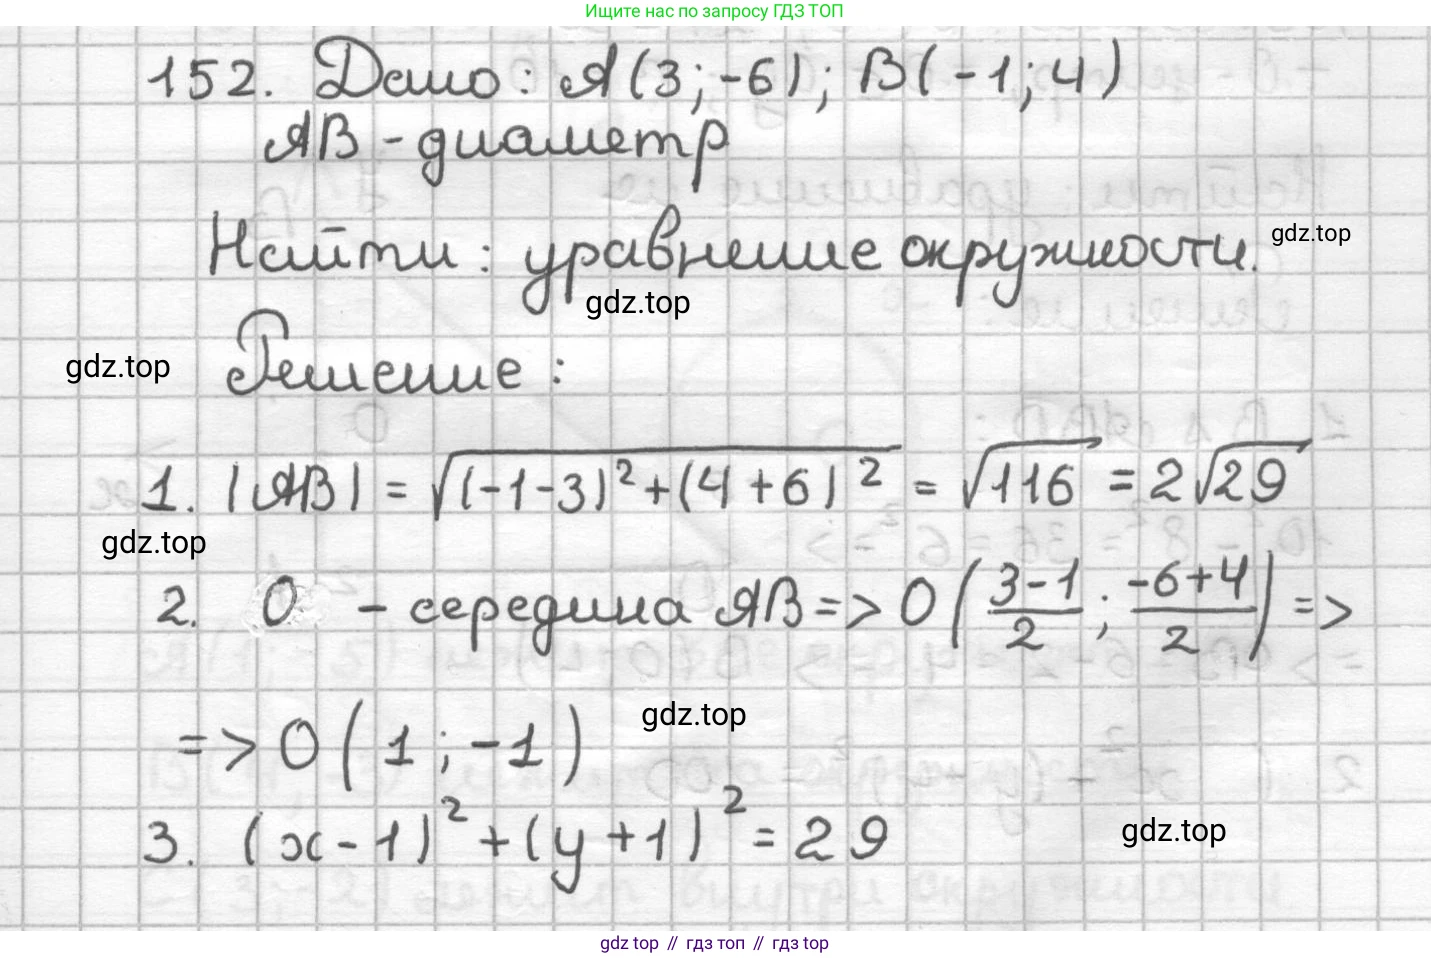 Ищите нас по запросу ГДЗ ТОП
152. Дано: A(3;-6); B(-1;4)
AB - диаметр
Найти: уравнение окружности.
gdz.top
gdz.top
gdz.top
Решение:
1. |AB| = √((-1-3)²+(4+6)²) = √116 = 2√29
gdz.top
2. O - середина AB => O((3-1)/2; (-6+4)/2) =>
gdz.top
=> O(1; -1)
3. (x-1)²+(y+1)² = 29
gdz.top
gdz top // гдз топ // gdz top